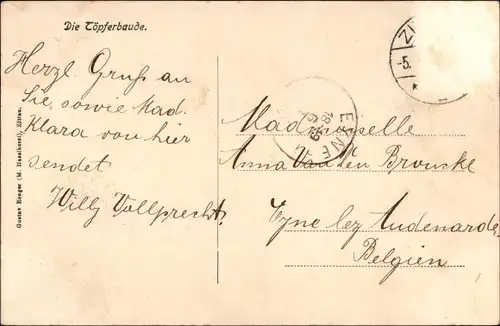 Die Töpferbaude.
Herzl. Gruß an
Sie, sowie Mad.
Klara von hier
sendet
Willy Vollprecht.
Gustav Rieger (M. Hasslkerel), Zittau.
EYNE
Mademoiselle
Anna Van den Broucke
Eyne lez Audenarde
Belgien
ZI
-5.